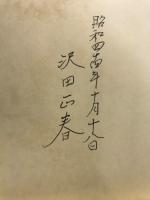 昭和四十年十月十八日
沢田正春